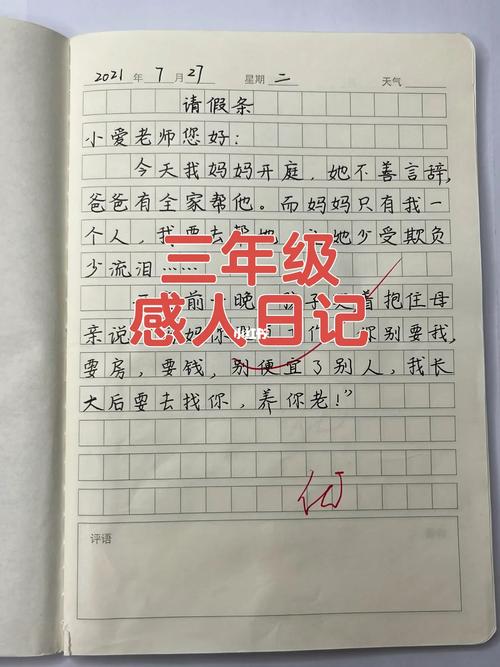 2021年 7月27 星期二 天气
请假条
小爱老师您好:
今天我妈妈开庭,她不善言辞,
爸爸有全家帮他。而妈妈只有我一
个人,我要去帮她,让她少受欺负
少流泪……
三年级
感人日记
小红书
前一晚,孩子 着抱住母
亲说 妈你 你别要我,
要房,要钱,别便宜了别人,我长
大后要去找你,养你老!"
优
评语